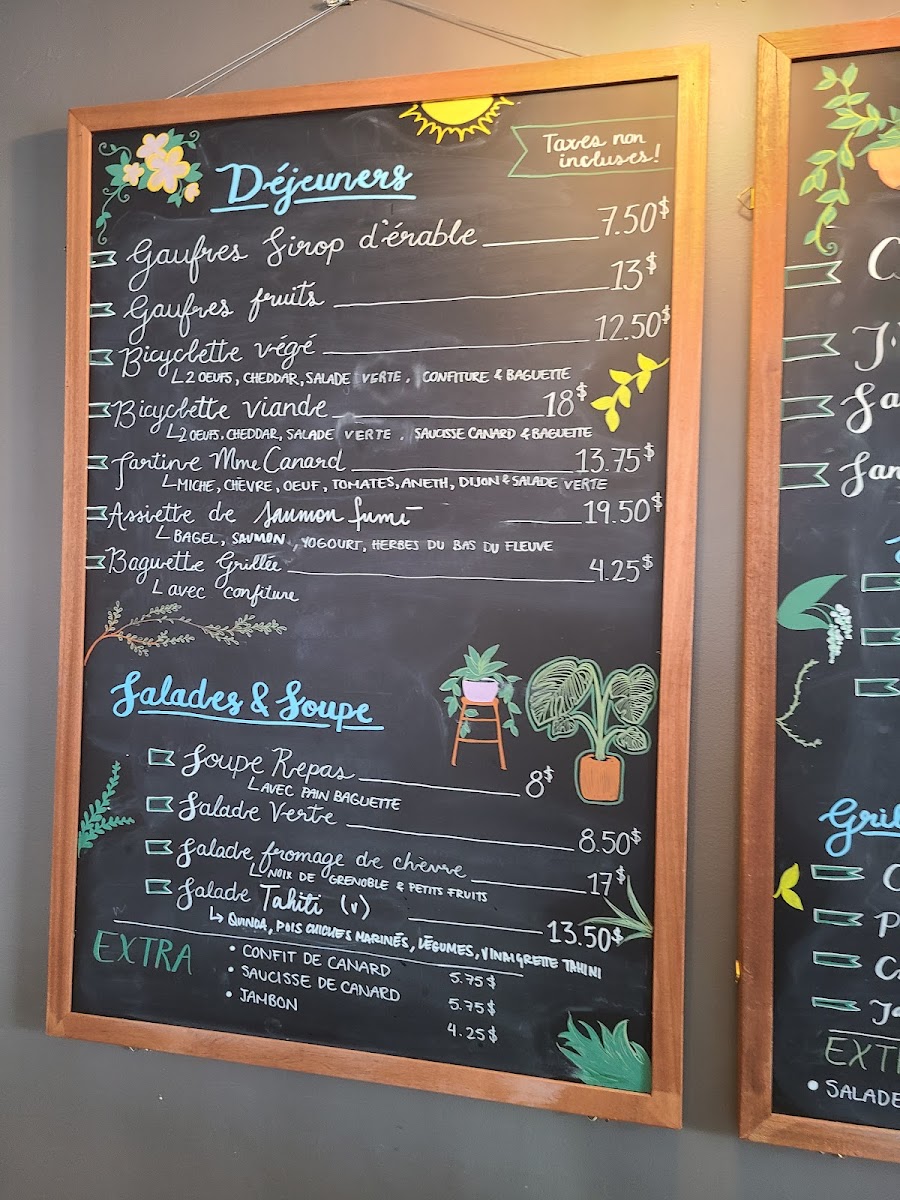 Taxes non
incluses!
Déjeuners
Gaufres Sirop d'érable 7.50$
Gaufres fruits 13$
Bicyclette végé 12.50$
2 OEUFS, CHEDDAR, SALADE VERTE, CONFITURE & BAGUETTE
Bicyclette viande 18$
2 OEUFS, CHEDDAR, SALADE VERTE, SAUCISSE CANARD & BAGUETTE
Tartine Mme Canard 13.75$
MICHE, CHÈVRE, OEUF, TOMATES, ANETH, DIJON & SALADE VERTE
Assiette de Saumon fumé 19.50$
BAGEL, SAUMON, YOGOURT, HERBES DU BAS DU FLEUVE
Baguette Grillée 4.25$
avec confiture
Salades & Soupe
Soupe Repas 8$
AVEC PAIN BAGUETTE
Salade Verte 8.50$
Salade fromage de chèvre 17$
NOIX DE GRENOBLE & PETITS FRUITS
Salade Tahiti (v) 13.50$
QUINOA, POIS CHICHES MARINÉS, LÉGUMES, VINAIGRETTE TAHINI
EXTRA
• CONFIT DE CANARD 5.75$
• SAUCISSE DE CANARD 5.75$
• JANBON 4.25$
• SALADE